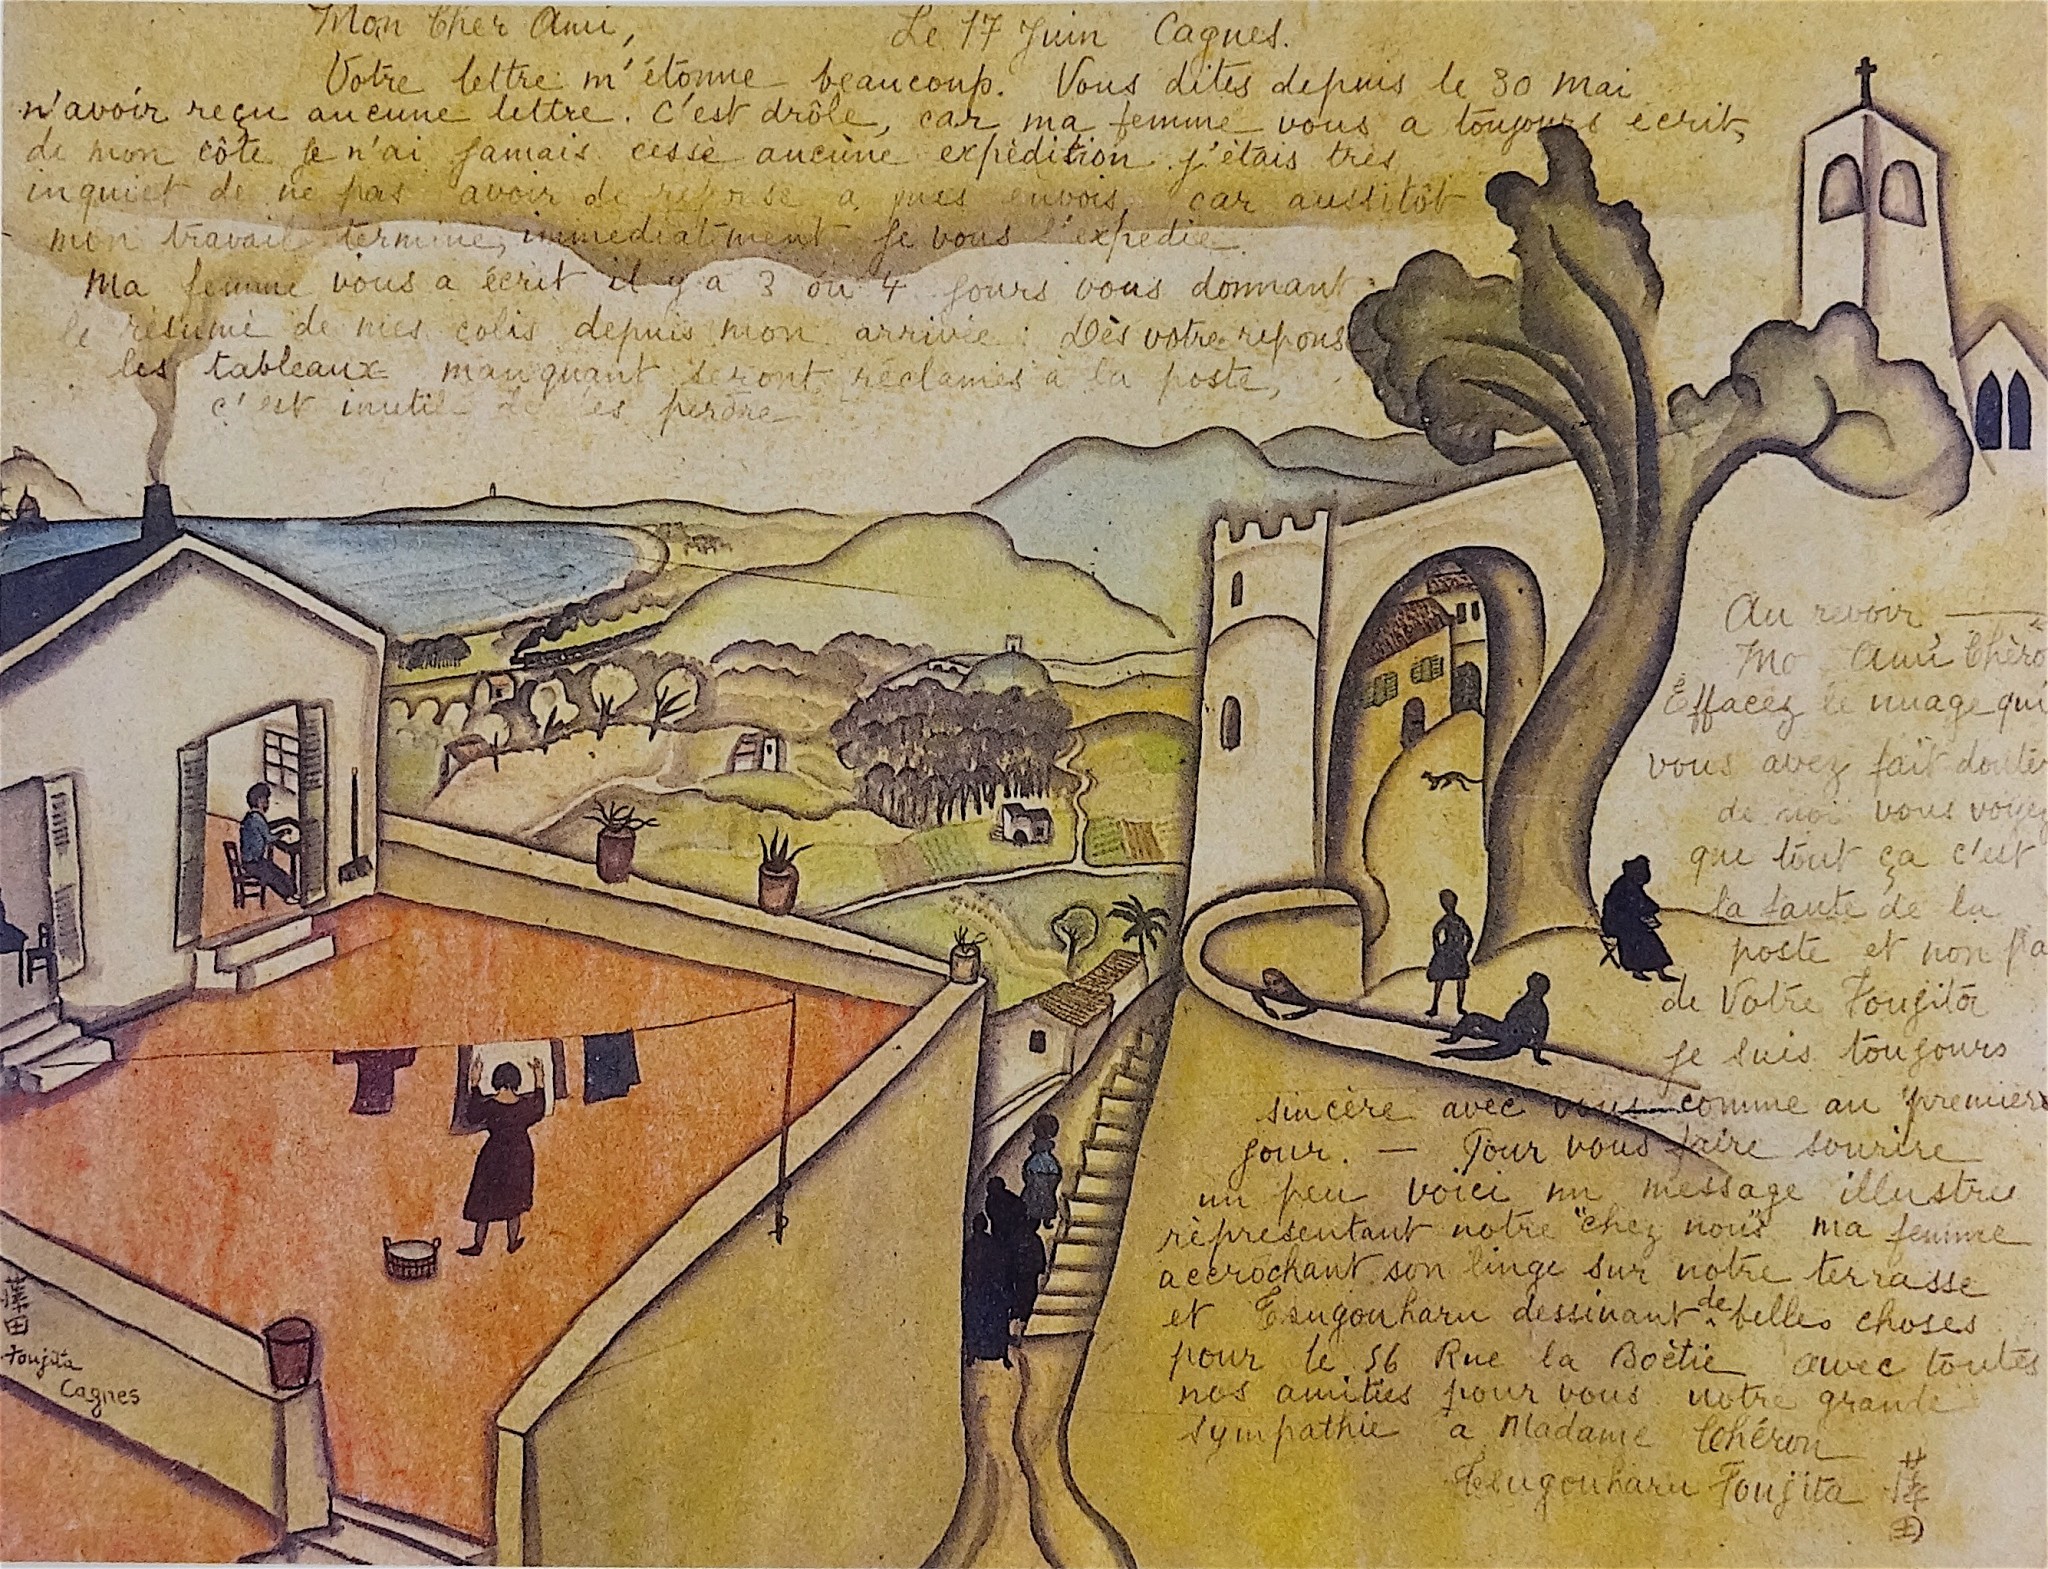 Mon Cher Ami,
Le 17 Juin Cagnes.
Votre lettre m'étonne beaucoup. Vous dites depuis le 30 Mai
n'avoir reçu aucune lettre. C'est drôle, car ma femme vous a toujours écrit,
de mon côte je n'ai jamais cessè aucune expédition. j'étais très
inquiet de ne pas avoir de reponse a mes envois car aussitôt
mon travail terminé, immediatement je vous l'expedie
Ma femme vous a écrit il y a 3 ou 4 jours vous donnant
le résumé de mes colis depuis mon arrivée : Dès votre repons
les tableaux manquant seront réclamés à la poste,
c'est inutil de les perdre
Au revoir —
Mo Ami Chéro
Effacez le nuage qui
vous avez fait douter
de moi vous voyez
que tout ça c'est
la faute de la
poste et non pa
de Votre Foujita
je suis toujours
sincère avec vous comme au premier
jour. — Pour vous faire sourire
un peu voici un message illustre
représentant notre "chez nous" ma femme
accrochant son linge sur notre terrasse
et Tsugouharu dessinant de belles choses
pour le 56 Rue la Boëtie avec toutes
nos amitiés pour vous notre grande
sympathie a Madame Chéron
Tsugouharu Foujita 嗣田
田
Foujita
Cagnes